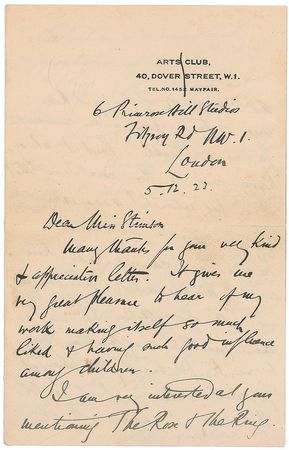 ARTS CLUB,
40, DOVER STREET, W.1.
TEL. NO. 1452 MAYFAIR.
6 Primrose Hill Studios
Fitzroy Rd NW.1.
London
5.12.23
Dear Miss Stimson
Many thanks for your very kind
& appreciative letter. It gives me
very great pleasure to hear of my
work making itself so much
liked & having such good influence
among children.
I am very interested at your
mentioning The Rose & the Ring.